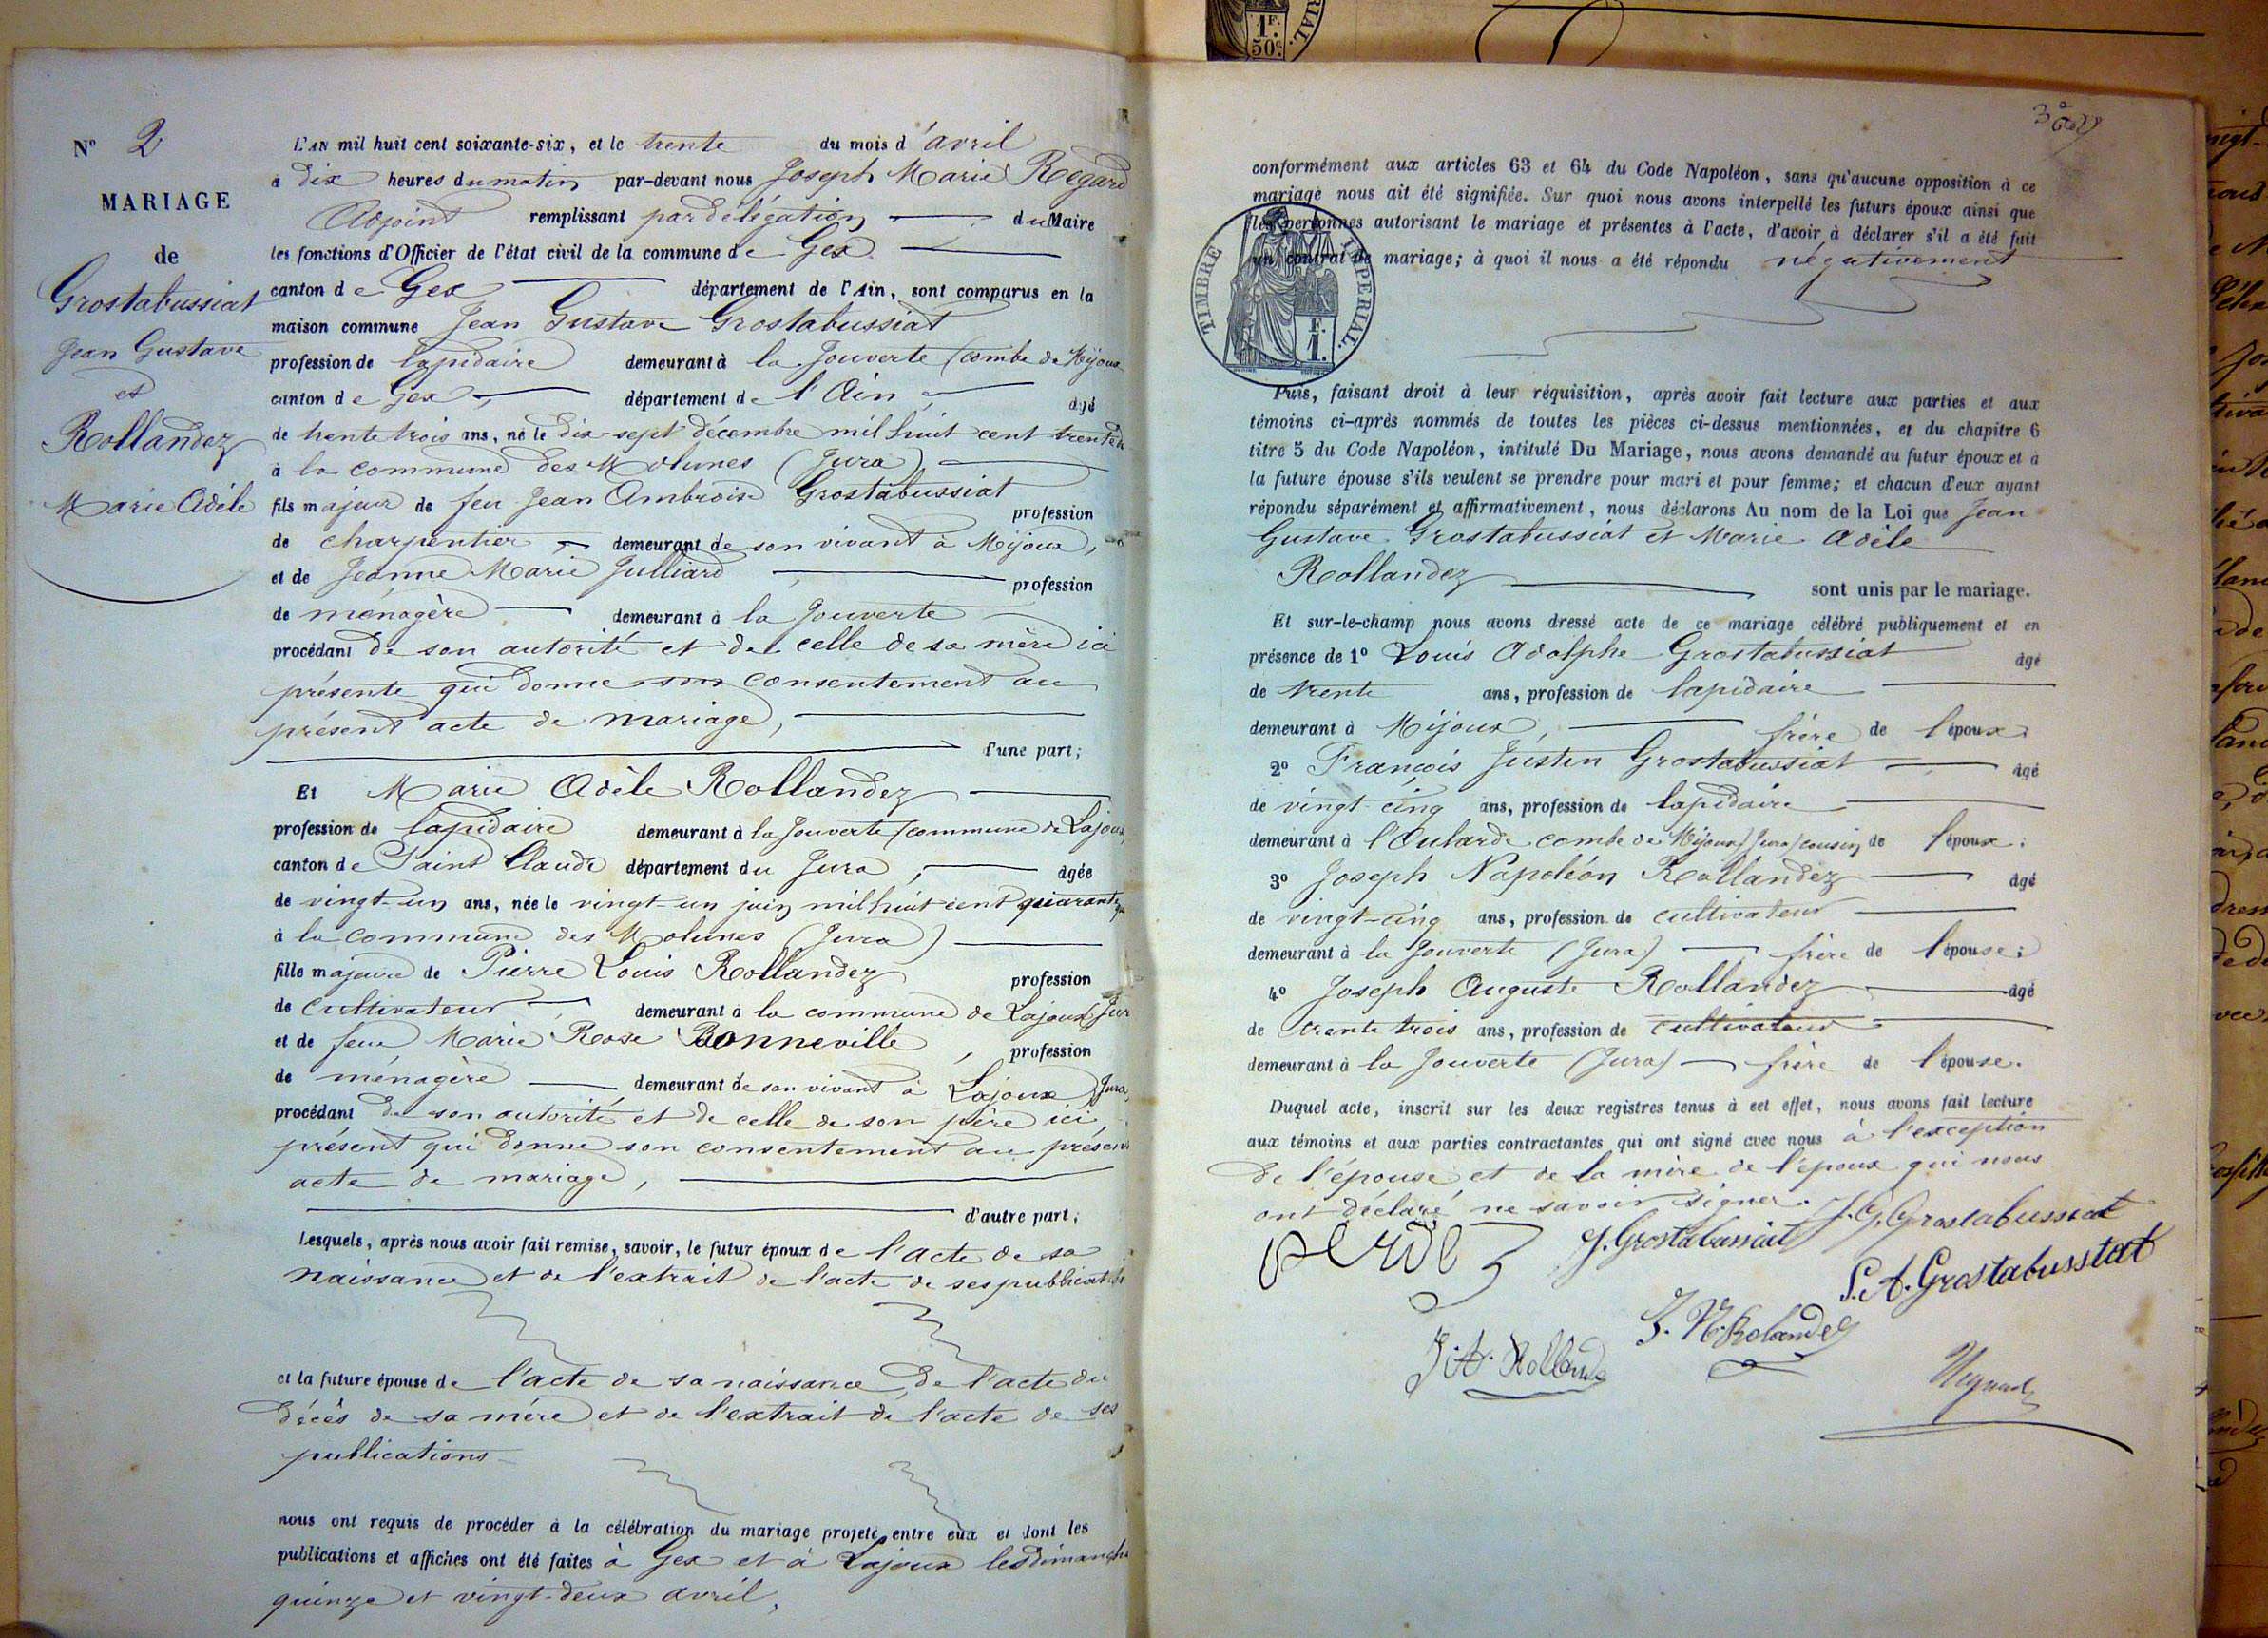 N° 2
MARIAGE
de
Grostabussiat
Jean Gustave
et
Rollandez
Marie Adèle
L'AN mil huit cent soixante-six, et le trente du mois d'avril
à dix heures du matin par-devant nous Joseph Marie Regard
Adjoint remplissant par délégation du Maire
les fonctions d'Officier de l'état civil de la commune de Gex
canton de Gex département de l'Ain, sont comparus en la
maison commune Jean Gustave Grostabussiat
profession de lapidaire demeurant à la Jouverte (combe de Mijoux
canton de Gex, département de l'Ain, âgé
de trente trois ans, né le dix-sept décembre mil huit cent trente
à la commune des Molunes (Jura)
fils majeur de feu Jean Ambroise Grostabussiat profession
de charpentier, demeurant de son vivant à Mijoux,
et de Jeanne Marie Julliard, profession
de ménagère demeurant à la Jouverte
procédant de son autorité et de celle de sa mère ici
présente qui donne son consentement au
présent acte de mariage,
d'une part;
Et Marie Adèle Rollandez
profession de lapidaire demeurant à la Jouverte (commune de Lajoux,
canton de Saint Claude département du Jura, âgée
de vingt-un ans, née le vingt-un juin mil huit cent quarante
à la commune des Molunes (Jura)
fille majeure de Pierre Louis Rollandez profession
de cultivateur, demeurant à la commune de Lajoux (Jur
et de feue Marie Rose Bonneville, profession
de ménagère, demeurant de son vivant à Lajoux (Jura,
procédant de son autorité et de celle de son père ici,
présent qui donne son consentement au présent
acte de mariage,
d'autre part;
Lesquels, après nous avoir fait remise, savoir, le futur époux de l'acte de sa
naissance et de l'extrait de l'acte de ses publications
et la future épouse de l'acte de sa naissance, de l'acte du
décès de sa mère et de l'extrait de l'acte de ses
publications
nous ont requis de procéder à la célébration du mariage projeté entre eux et dont les
publications et affiches ont été faites à Gex et à Lajoux les dimanche
quinze et vingt-deux avril,
1F.
50c
conformément aux articles 63 et 64 du Code Napoléon, sans qu'aucune opposition à ce
mariage nous ait été signifiée. Sur quoi nous avons interpellé les futurs époux ainsi que
les personnes autorisant le mariage et présentes à l'acte, d'avoir à déclarer s'il a été fait
un contrat de mariage; à quoi il nous a été répondu négativement
TIMBRE IMPERIAL.
F.
1.
Puis, faisant droit à leur réquisition, après avoir fait lecture aux parties et aux
témoins ci-après nommés de toutes les pièces ci-dessus mentionnées, et du chapitre 6
titre 5 du Code Napoléon, intitulé Du Mariage, nous avons demandé au futur époux et à
la future épouse s'ils veulent se prendre pour mari et pour femme; et chacun d'eux ayant
répondu séparément et affirmativement, nous déclarons Au nom de la Loi que Jean
Gustave Grostabussiat et Marie Adèle
Rollandez sont unis par le mariage.
Et sur-le-champ nous avons dressé acte de ce mariage célébré publiquement et en
présence de 1° Louis Adolphe Grostabussiat âgé
de trente ans, profession de lapidaire
demeurant à Mijoux, frère de l'époux.
2° François Justin Grostabussiat âgé
de vingt cinq ans, profession de lapidaire
demeurant à l'Oularde combe de Mijoux (Jura) cousin de l'époux;
3° Joseph Napoléon Rollandez âgé
de vingt-cinq ans, profession de cultivateur
demeurant à la Jouverte (Jura) frère de l'épouse;
4° Joseph Auguste Rollandez âgé
de trente trois ans, profession de cultivateur
demeurant à la Jouverte (Jura) frère de l'épouse.
Duquel acte, inscrit sur les deux registres tenus à cet effet, nous avons fait lecture
aux témoins et aux parties contractantes qui ont signé avec nous à l'exception
de l'épouse et de la mère de l'époux qui nous
ont déclaré ne savoir signer.
J. Grostabussiat J. G. Grostabussiat
L. A. Grostabussiat
J. N. Rolandez
J. A. Rollande
Regard